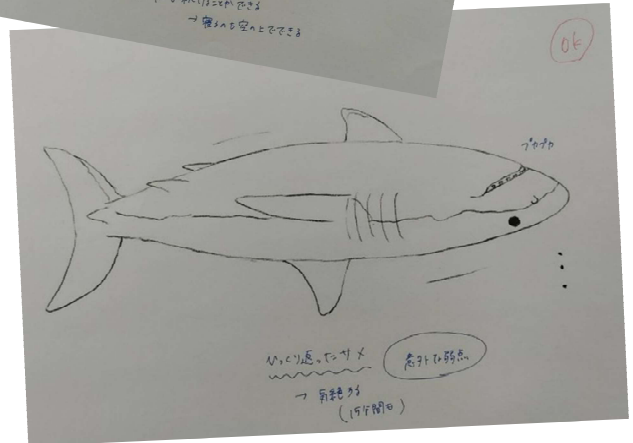 →寝るのも空の上でできる
OK
プカプカ
ひっくり返ったサメ
意外な弱点
→ 気絶する
(15分間程)